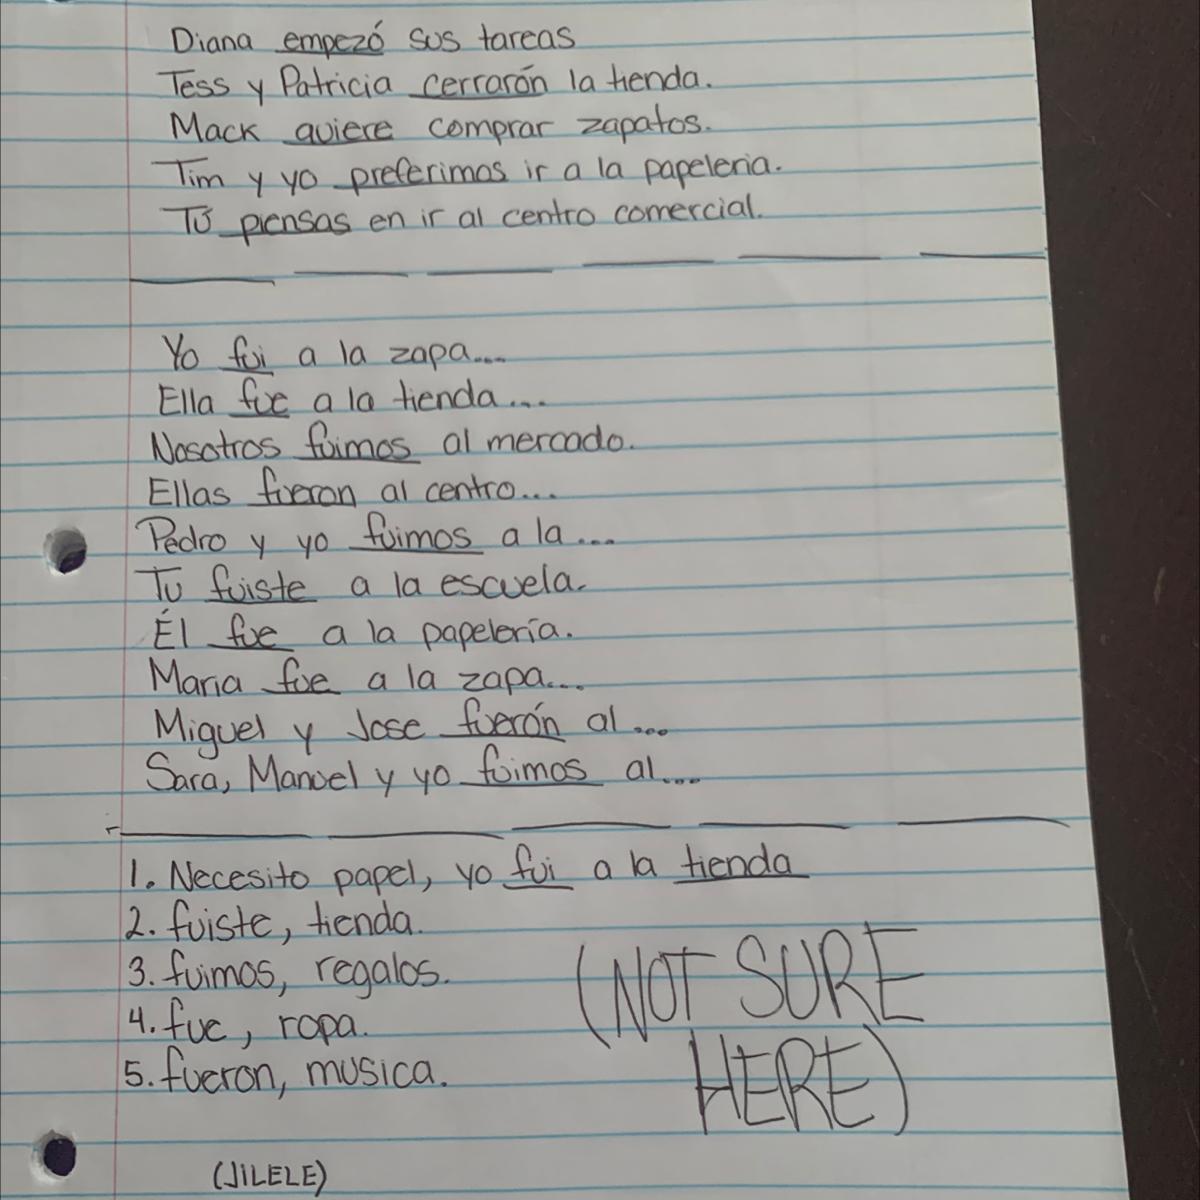 Diana empezó sus tareas
Tess y Patricia cerrarón la tienda.
Mack quiere comprar zapatos.
Tim y yo preferimos ir a la papeleria.
Tú piensas en ir al centro comercial.
Yo fui a la zapa...
Ella fue a la tienda...
Nosotros fuimos al mercado.
Ellas fueron al centro...
Pedro y yo fuimos a la ...
Tu fuiste a la escuela.
Él fue a la papelería.
Maria fue a la zapa...
Miguel y Jose fuerón al ...
Sara, Manuel y yo fuimos al...
1. Necesito papel, yo fui a la tienda
2. fuiste, tienda.
3. fuimos, regalos.
4. fue, ropa.
5. fueron, musica.
(NOT SURE
HERE)
(JILELE)